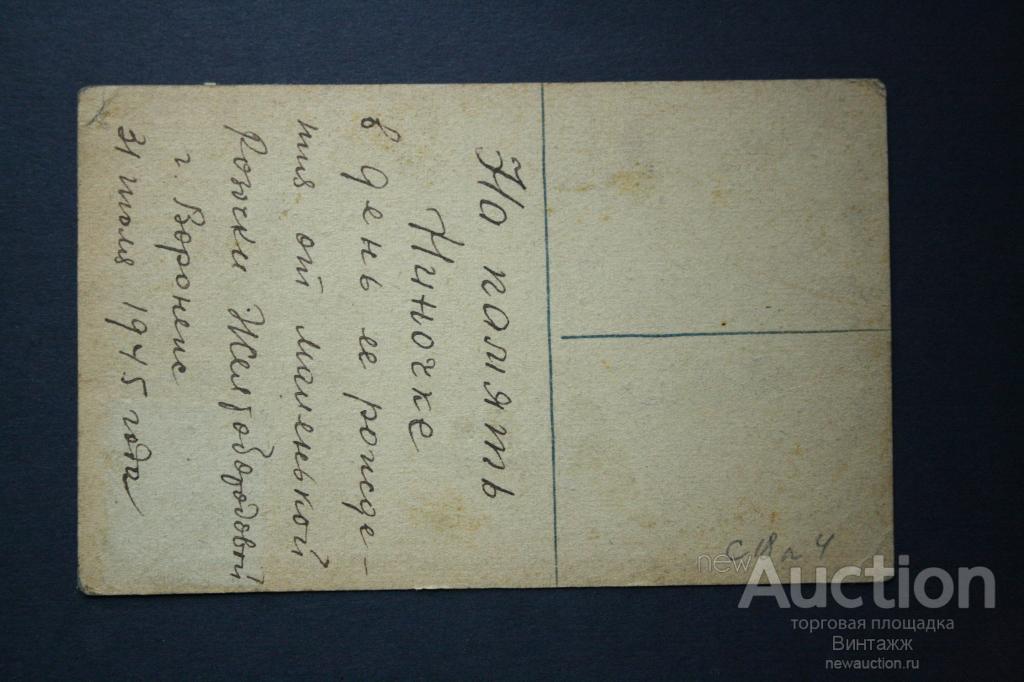 На память
Ниночке
в день ее рожде-
ния от маленькой
Розочки Желтобородовой
г. Воронеж
31 июля 1945 года
newAuction
торговая площадка
Винтажж
newauction.ru